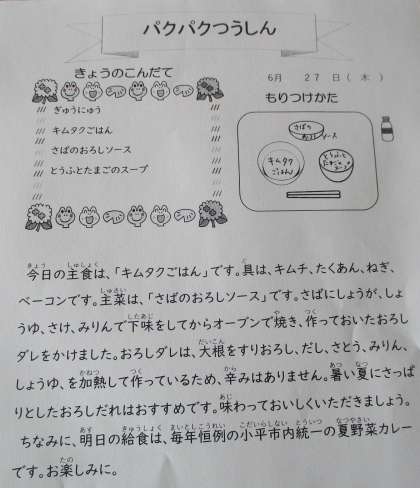 パクパクつうしん
きょうのこんだて
ぎゅうにゅう
キムタクごはん
さばのおろしソース
とうふとたまごのスープ
6月 27日(木)
もりつけかた
さばの
おろしソース
キムタク
ごはん
とうふと
たまごの
スープ
今日の主食は、「キムタクごはん」です。具は、キムチ、たくあん、ねぎ、
ベーコンです。主菜は、「さばのおろしソース」です。さばにしょうが、しょ
うゆ、さけ、みりんで下味をしてからオーブンで焼き、作っておいたおろし
ダレをかけました。おろしダレは、大根をすりおろし、だし、さとう、みりん、
しょうゆ、を加熱して作っているため、辛みはありません。暑い夏にさっぱ
りとしたおろしだれはおすすめです。味わっておいしくいただきましょう。
ちなみに、明日の給食は、毎年恒例の小平市内統一の夏野菜カレー
です。お楽しみに。